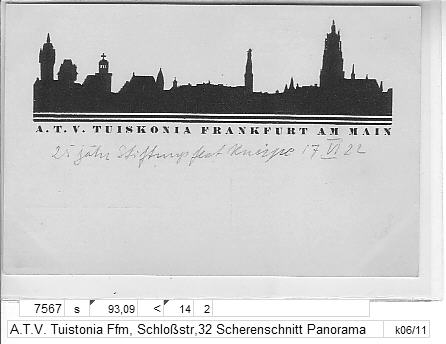 A.T.V. TUISKONIA FRANKFURT AM MAIN
25 jähr Stiftungsfest Kneipe 17 VI 22
7567 s 93,09 < 14 2
A.T.V. Tuistonia Ffm, Schloßstr,32 Scherenschnitt Panorama k06/11